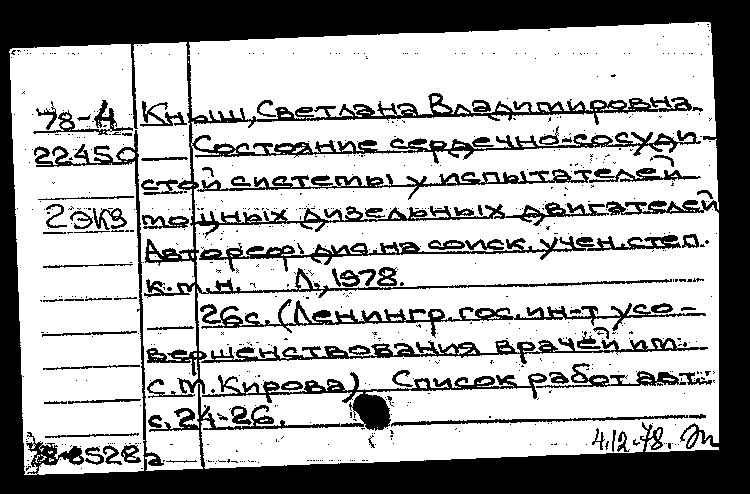 78-4 Кныш, Светлана Владимировна.
22450 Состояние сердечно-сосуди-
стой системы у испытателей
2 экз мощных дизельных двигателей
Автореф. дис. на соиск. учен. степ.
к.м.н. Л., 1978.
26с. (Ленингр. гос. ин-т усо-
вершенствования врачей им.
С.М. Кирова) Список работ авт.:
с. 24-26.
4.12.78.